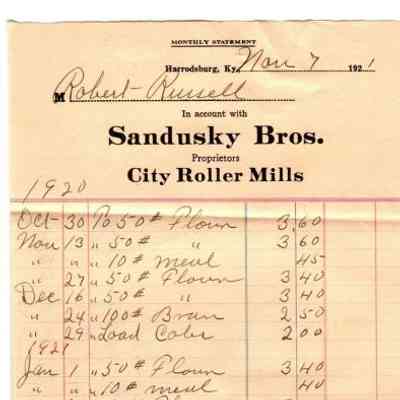 MONTHLY STATEMENT
Harrodsburg, Ky., Nov 7 1921
M Robert Russell
In account with
Sandusky Bros.
Proprietors
City Roller Mills
1920
Oct 30 To 50 # Flour 3.60
Nov 13 " 50 # " 3 60
" " " 10 # meal 45
" 27 " 50 # Flour 3 40
Dec 16 " 50 # " 3 40
" 24 " 100 # Bran 2 50
" 29 " Load Cobs 2 00
1921
Jan 1 " 50 # Flour 3 40
" " " 10 # meal 40